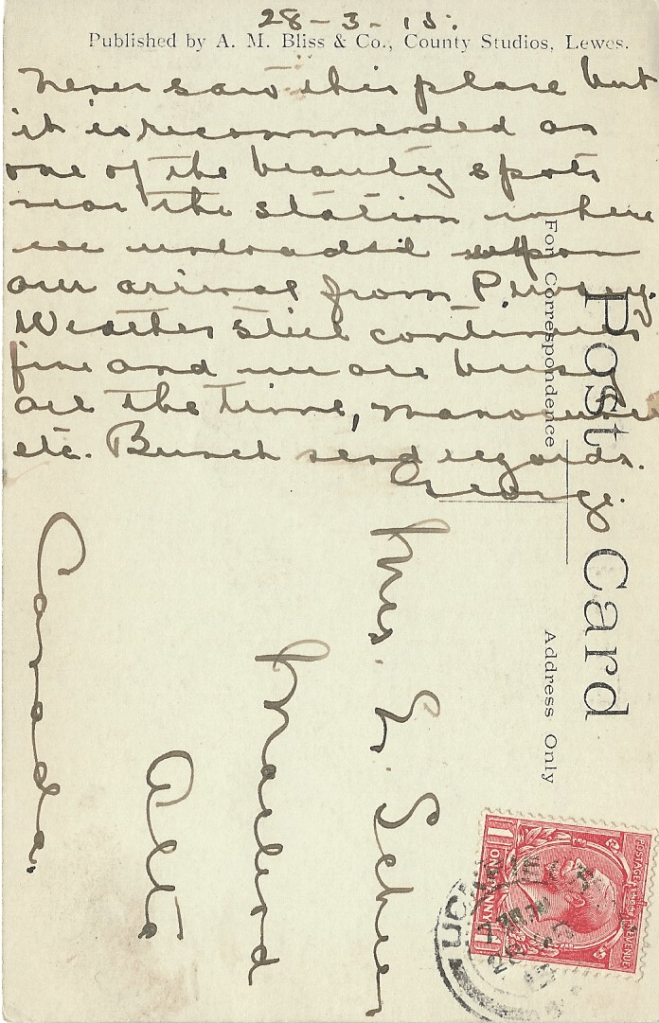 28-3-15.
Published by A. M. Bliss & Co., County Studios, Lewes.
Never saw this place but
it is recommended as
one of the beauty spots
near the station where
we unloaded upon
our arrival from
Weather still continues
fine and we are busy
all the time, manoeuvres
etc. Bunch send regards.
George
Post Card
For Correspondence
Address Only
Mrs. E. Scheer
Macleod
Alta
Canada.
POSTAGE REVENUE
ONE PENNY
1 1